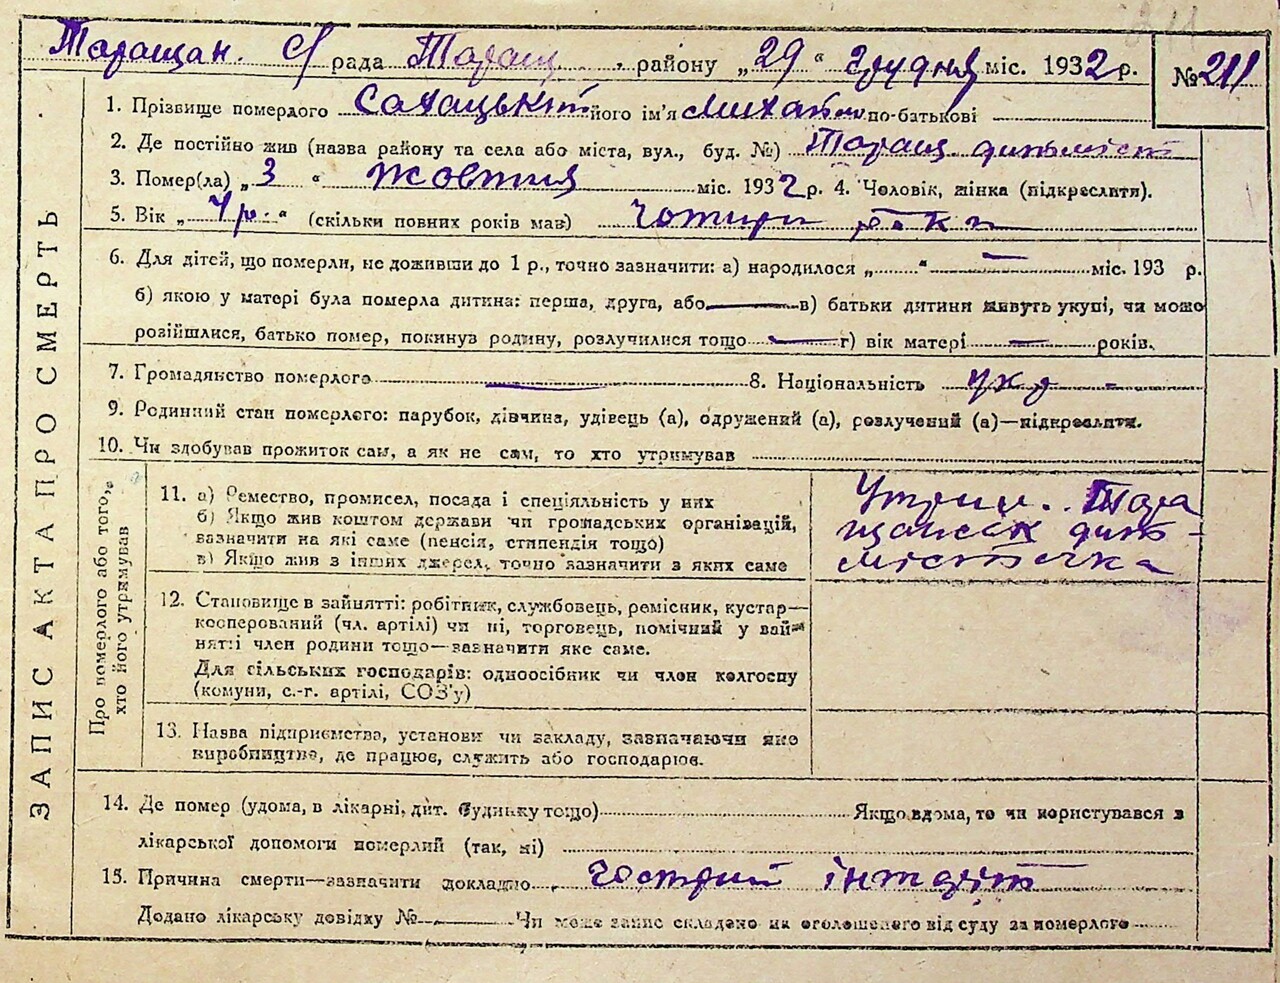 Таращан. с/рада Таращ. району „29“ Грудня міс. 1932 р. № 211
1. Прізвище померлого Сахацький його ім'я Михайло по-батькові
2. Де постійно жив (назва району та села або міста, вул., буд. №) Таращ. дитмістт
3. Помер(ла) „3“ жовтня міс. 1932 р. 4. Чоловік, жінка (підкреслити).
5. Вік „4 р.“ (скільки повних років мав) чотири роки
6. Для дітей, що померли, не доживши до 1 р., точно зазначити: а) народилося „ “ — міс. 193 р.
б) якою у матері була померла дитина: перша, друга, або — в) батьки дитини живуть укупі, чи може
розійшлися, батько помер, покинув родину, розлучилися тощо — г) вік матері — років.
7. Громадянство померлого — 8. Національність укр -
9. Родинний стан померлого: парубок, дівчина, удівець (а), одружений (а), розлучений (а)—підкреслити.
10. Чи здобував прожиток сам, а як не сам, то хто утримував
ЗАПИС АКТА ПРО СМЕРТЬ
Про померлого або того, хто його утримував
11. а) Ремество, промисел, посада і спеціяльність у них
б) Якщо жив коштом держави чи громадських організацій,
зазначити на які саме (пенсія, стипендія тощо)
в) Якщо жив з інших джерел, точно зазначити з яких саме
Утрим. Тара
щанськ дит-
містечка
12. Становище в зайнятті: робітник, службовець, ремісник, кустар—
кооперований (чл. артілі) чи ні, торговець, помічний у зай-
нятті член родини тощо—зазначити яке саме.
Для сільських господарів: одноосібник чи член колгоспу
(комуни, с.-г. артілі, СОЗ'у)
13. Назва підприємства, установи чи закладу, зазначаючи яке
виробництво, де працює, служить або господарює.
14. Де помер (удома, в лікарні, дит. будинку тощо) Якщо вдома, то чи користувався з
лікарської допомоги померлий (так, ні)
15. Причина смерти—зазначити докладно гострий
Додано лікарську довідку № — Чи може запис складено на оголошеного від суду за померлого